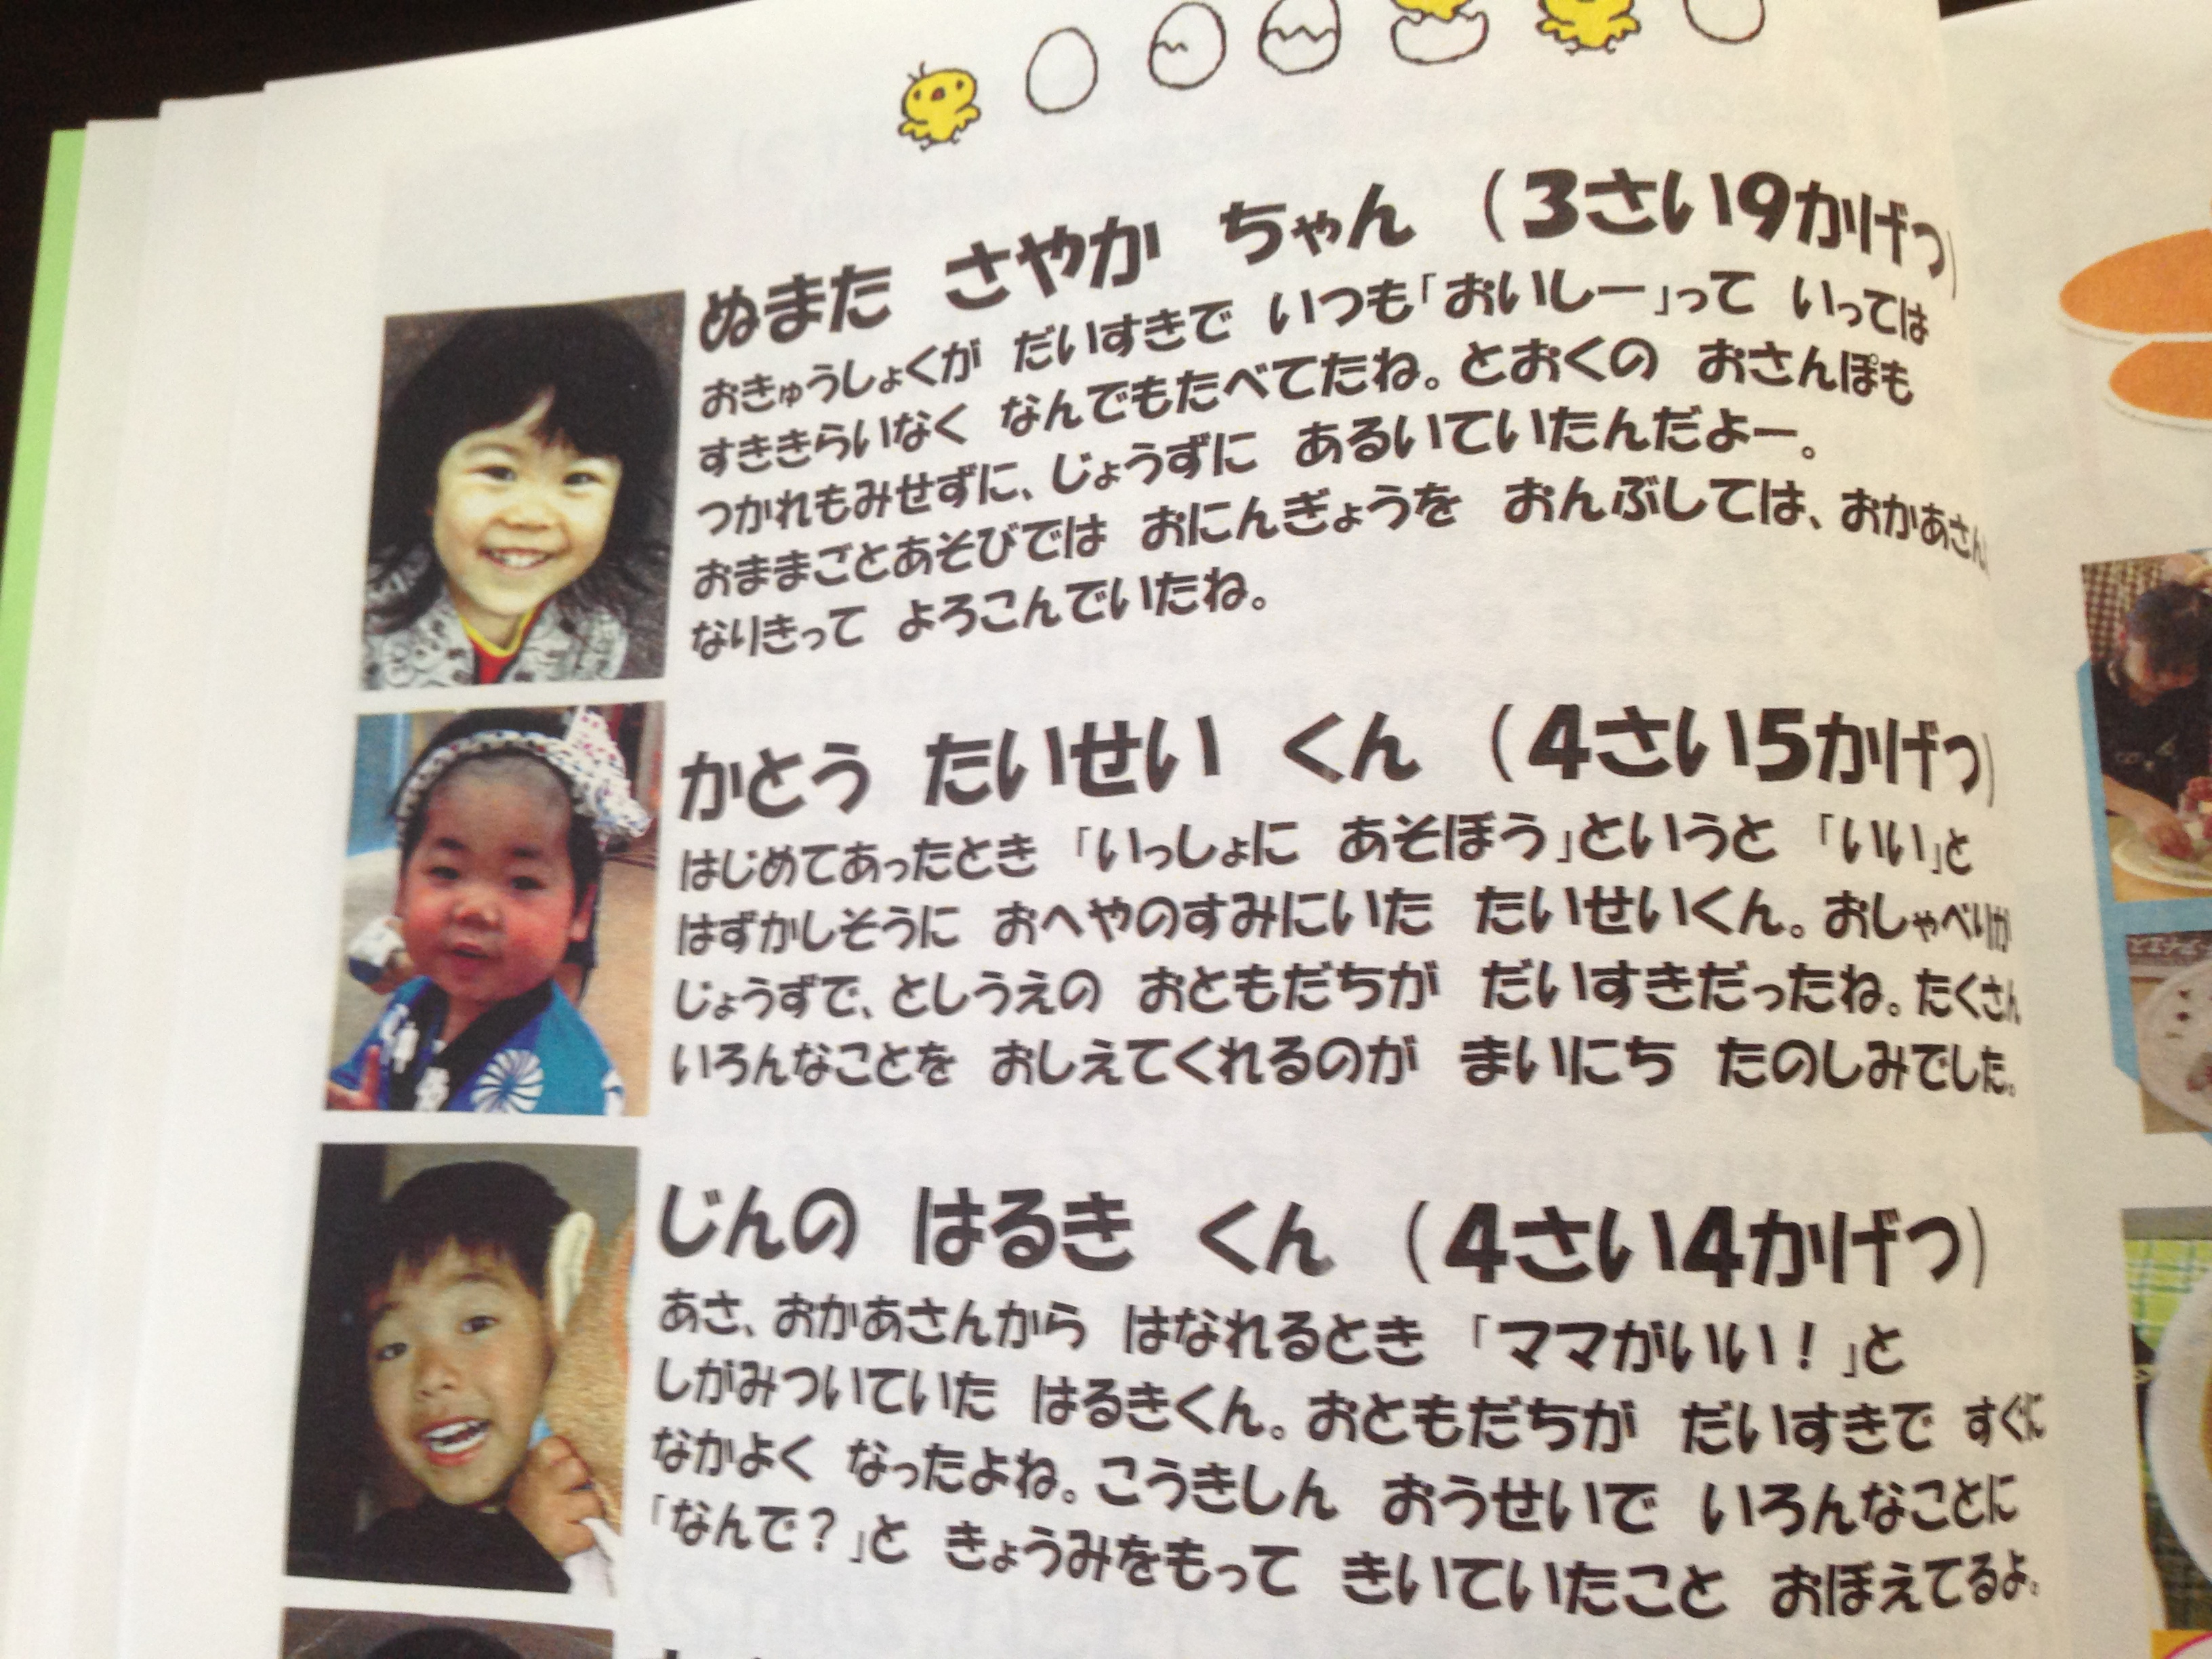 ぬまた さやか ちゃん (3さい9かげつ)
おきゅうしょくが だいすきで いつも「おいしー」って いっては
すききらいなく なんでもたべてたね。とおくの おさんぽも
つかれもみせずに、じょうずに あるいていたんだよー。
おままごとあそびでは おにんぎょうを おんぶしては、おかあさん
なりきって よろこんでいたね。
かとう たいせい くん (4さい5かげつ)
はじめてあったとき 「いっしょに あそぼう」というと 「いい」と
はずかしそうに おへやのすみにいた たいせいくん。おしゃべりが
じょうずで、としうえの おともだちが だいすきだったね。たくさん
いろんなことを おしえてくれるのが まいにち たのしみでした。
じんの はるき くん (4さい4かげつ)
あさ、おかあさんから はなれるとき 「ママがいい!」と
しがみついていた はるきくん。おともだちが だいすきで すぐに
なかよく なったよね。こうきしん おうせいで いろんなことに
「なんで?」と きょうみをもって きいていたこと おぼえてるよ。